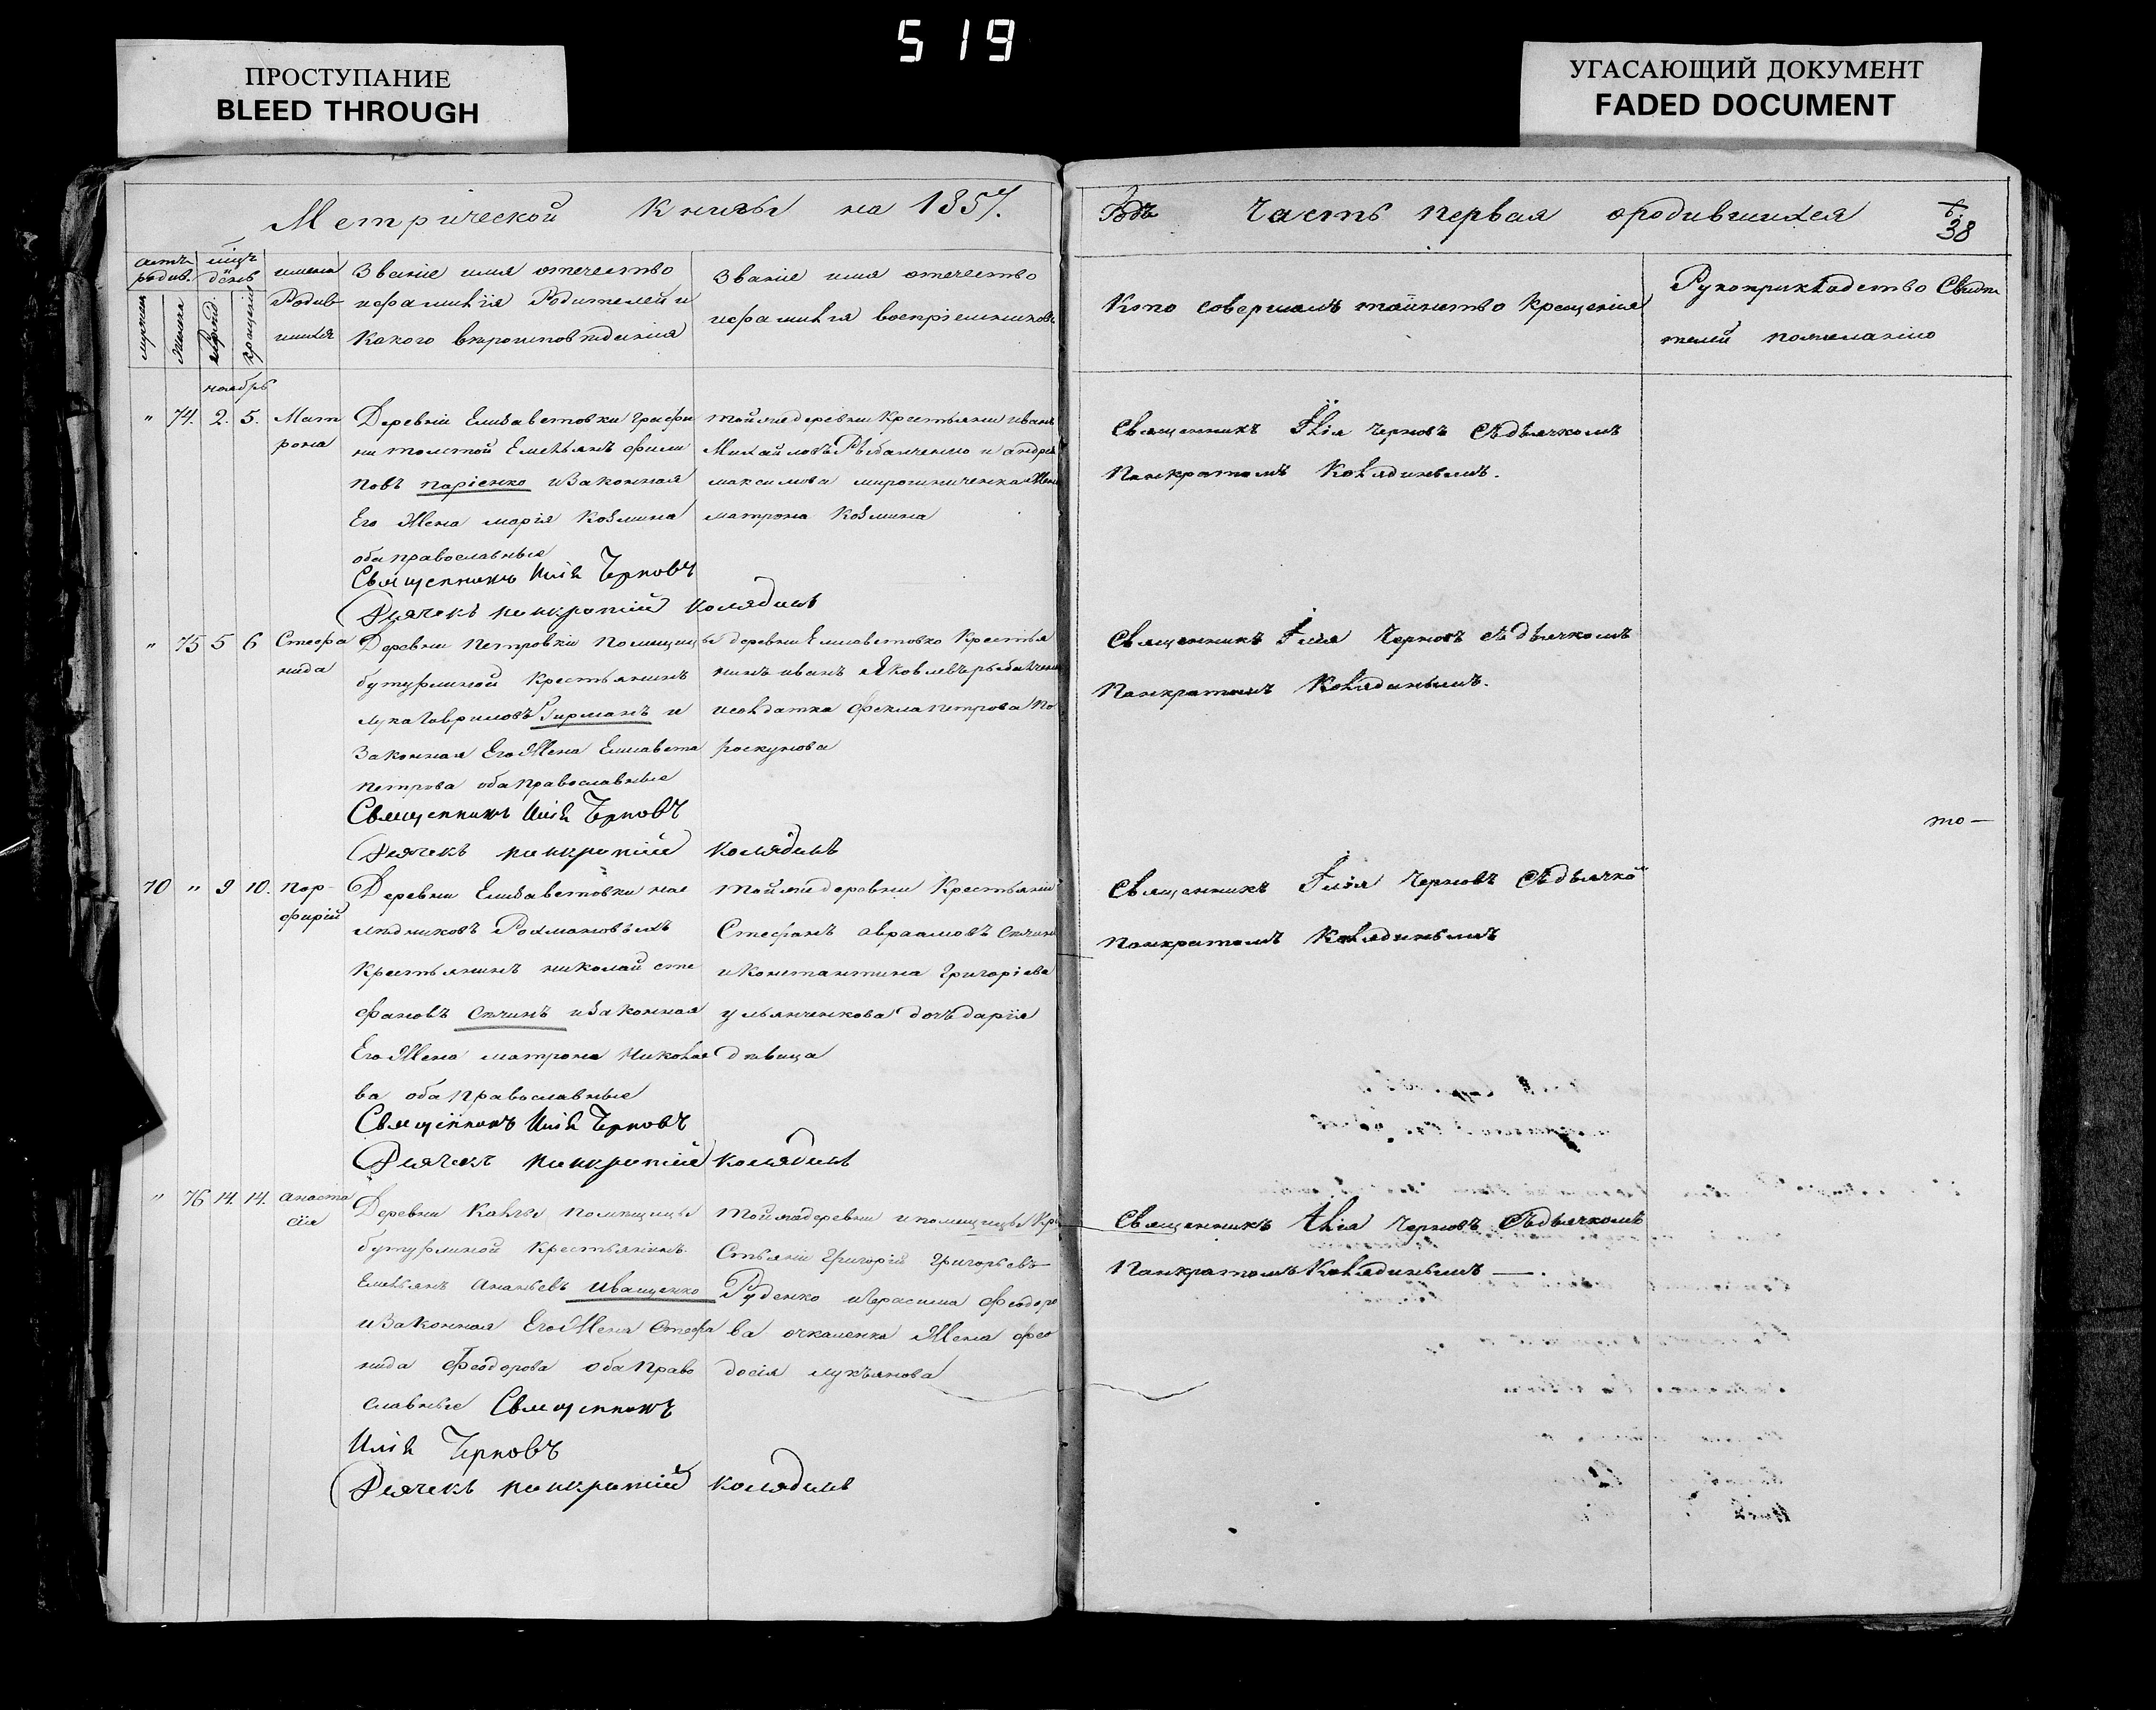 519
ПРОСТУПАНИЕ
BLEED THROUGH
УГАСАЮЩИЙ ДОКУМЕНТ
FADED DOCUMENT
Метрической Книгы на 1857.
Годъ Часть первая ородившихся
38
имена
Родив
шихся
Званіе имя отечество
ифамилія Родителей и
Какого вѣроисповѣданія
Званіе имя отечество
ифамилія воспріемниковъ
Кто совершалъ таинство Крещенія
Рукоприкладство Свидѣ
телей пожеланію
ноябрь
" 74. 2. 5.
Мат
рона
Деревни Елизаветовки Графи
ни толстой Емельянъ фили
повъ паріенко изаконная
Его Жена марія Козмина
оба православные
Священникъ Илія Черновъ
Дьячекъ панкратій Колядинъ
тойжедеревни Крестьяни иванъ
Михайловъ Рыбалченко и андрея
максимова мирошниченка Жена
матрона Козмина
Священникъ Илія Черновъ Сдьячкомъ
Панкратомъ Колядинымъ.
" 75 5 6
Стефа
нида
Деревни Петровки Помещицы
бутурлиной Крестьянинъ
лука Гавриловъ Гирманъ и
Законная Его Жена Елисавета
петрова оба православные
Священникъ Илія Черновъ
Дьячекъ панкратій Колядинъ
деревни Елисаветовко Крестья
нинъ иванъ Яковлевъ рыбалченко
исолдатка Фекла петрова По
роскунова
Священникъ Илія Черновъ Сдьячкомъ
Панкратомъ Колядинымъ.
то—
70 " 9 10.
Пор-
фирій
Деревни Елизаветовки нас
лѣдниковъ Рахмановыхъ
Крестьянинъ николай сте
фановъ Сѣчинъ изаконная
Его Жена матрона Никола
ва оба православные
Священникъ Илія Черновъ
Дьячекъ панкратій Колядинъ
тойжедеревни Крестьяни
Стефанъ авраамовъ Сѣчин
иКонстантина Григоріева
ульянченкова дочъ дарія
дѣвица
Священникъ Илія Черновъ Сдьячко
Панкратомъ Колядинымъ
" 76 14. 14.
анаста
сія
Деревни Калчы помѣщицы
бутурлиной Крестьянинъ
Емельянъ Ананьевъ Иващенко
изаконная Его Жена Стефа
нида Феодорова оба Право
славные Священникъ
Илія Черновъ
Дьячекъ панкратій Колядинъ
тойжедеревни ипомещицы Кре
стьяни Григорій Григорьевъ
Руденко иГерасима Феодоро
ва очкаленка Жена фео
досія лукъянова
Священникъ Илія Черновъ Сдьячкомъ
Панкратомъ Колядинымъ —.